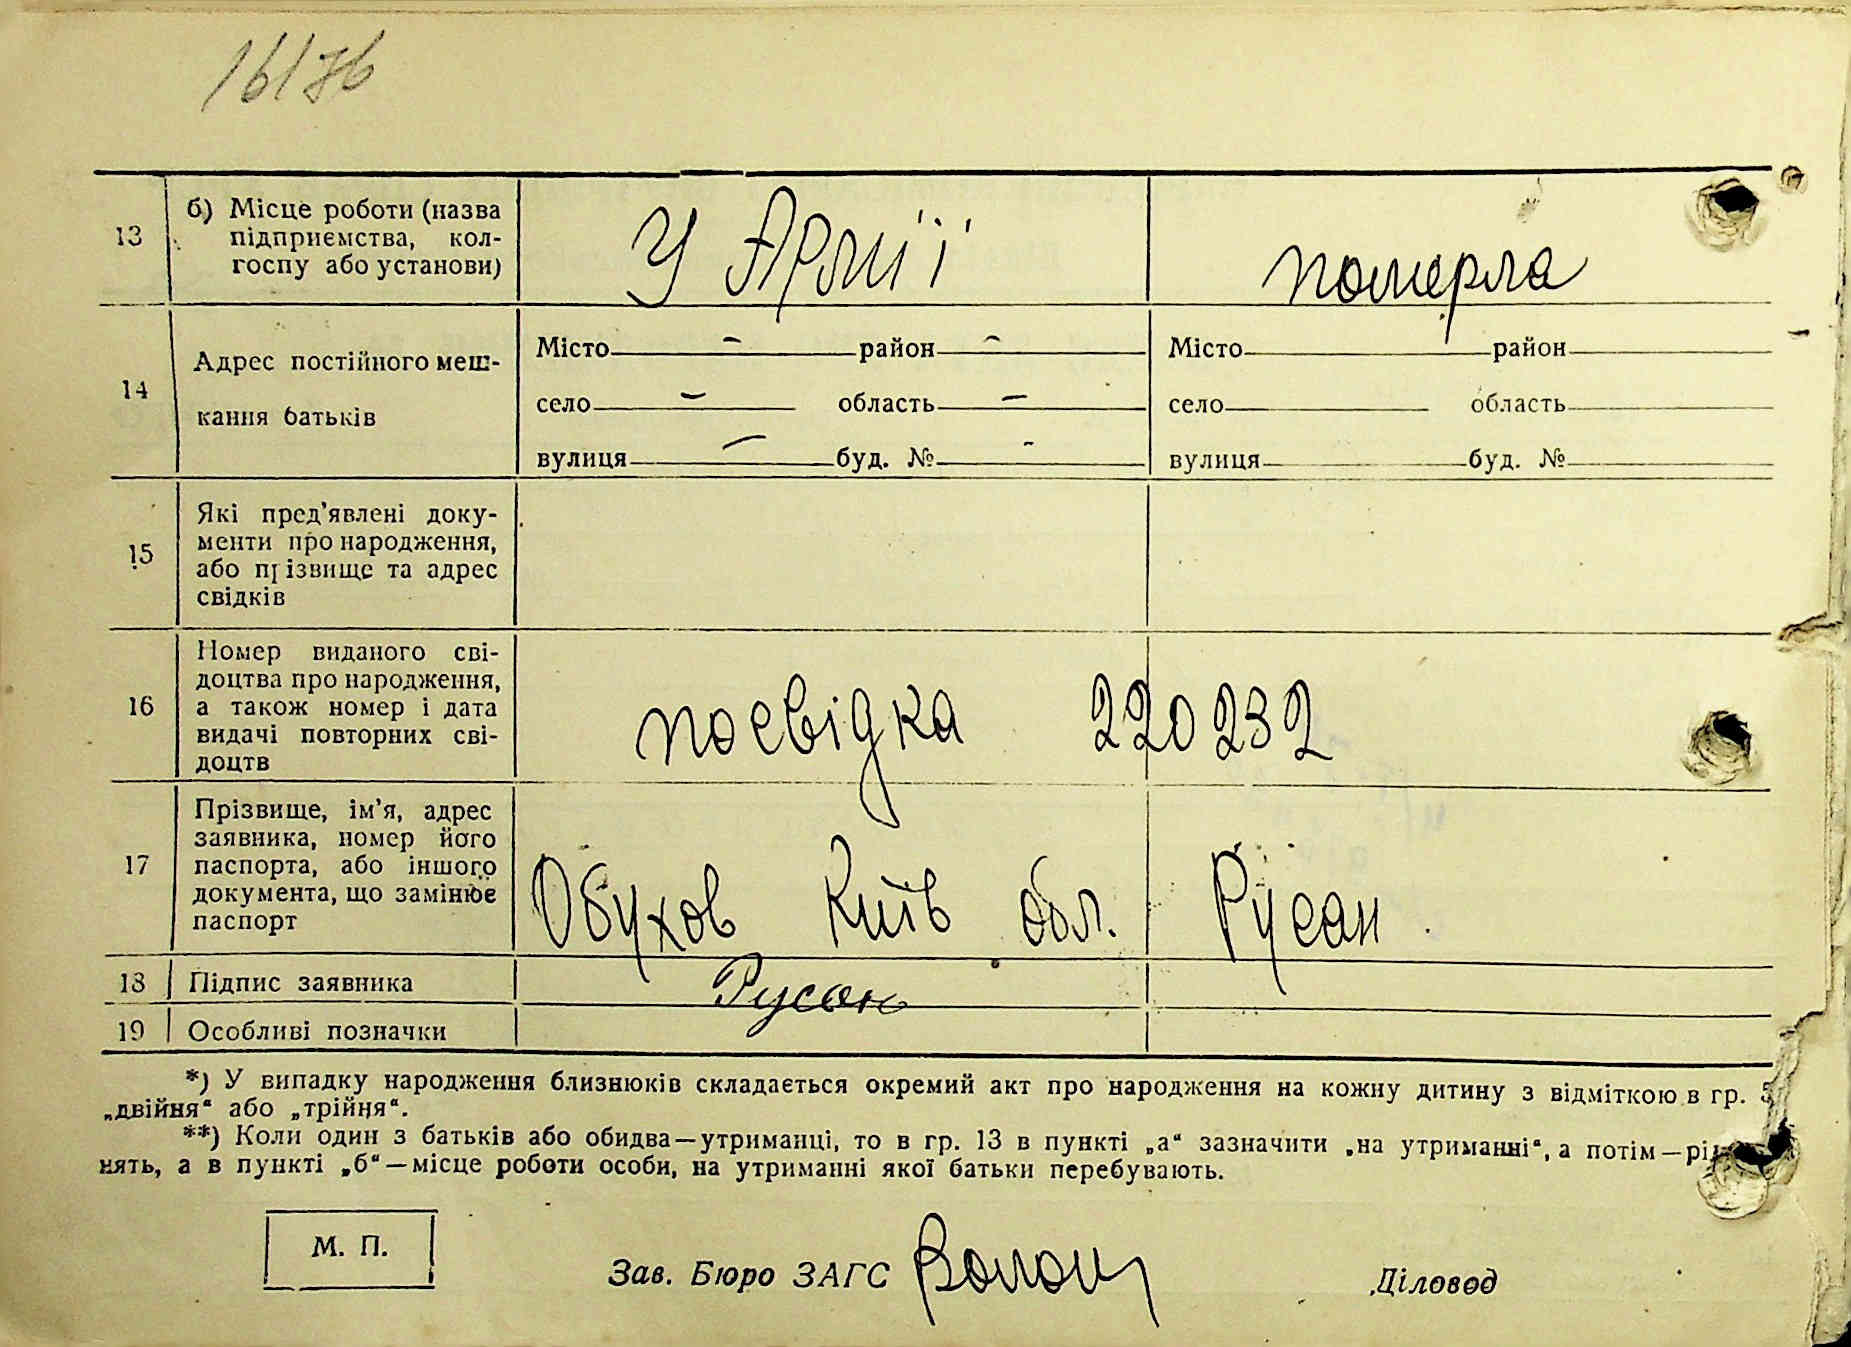 16176
13 б) Місце роботи (назва
підприємства, кол-
госпу або установи)
У Армії
померла
14 Адрес постійного меш-
кання батьків
Місто — район — Місто район
село — область — село область
вулиця — буд. № - вулиця буд. №
15 Які пред'явлені доку-
менти про народження,
або прізвище та адрес
свідків
16 Номер виданого сві-
доцтва про народження,
а також номер і дата
видачі повторних сві-
доцтв
посвідка 220232
17 Прізвище, ім'я, адрес
заявника, номер його
паспорта, або іншого
документа, що замінює
паспорт
Обухов Київ обл. Русан
18 Підпис заявника Русан
19 Особливі позначки
*) У випадку народження близнюків складається окремий акт про народження на кожну дитину з відміткою в гр. 5
„двійня“ або „трійня“.
**) Коли один з батьків або обидва—утриманці, то в гр. 13 в пункті „а“ зазначити „на утриманні“, а потім—
нять, а в пункті „б“—місце роботи особи, на утриманні якої батьки перебувають.
М. П.
Зав. Бюро ЗАГС
Діловод